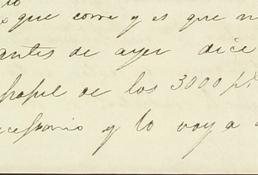 que corre y es que n
antes de ayer dice
papel de los 3000 p
y lo voy a